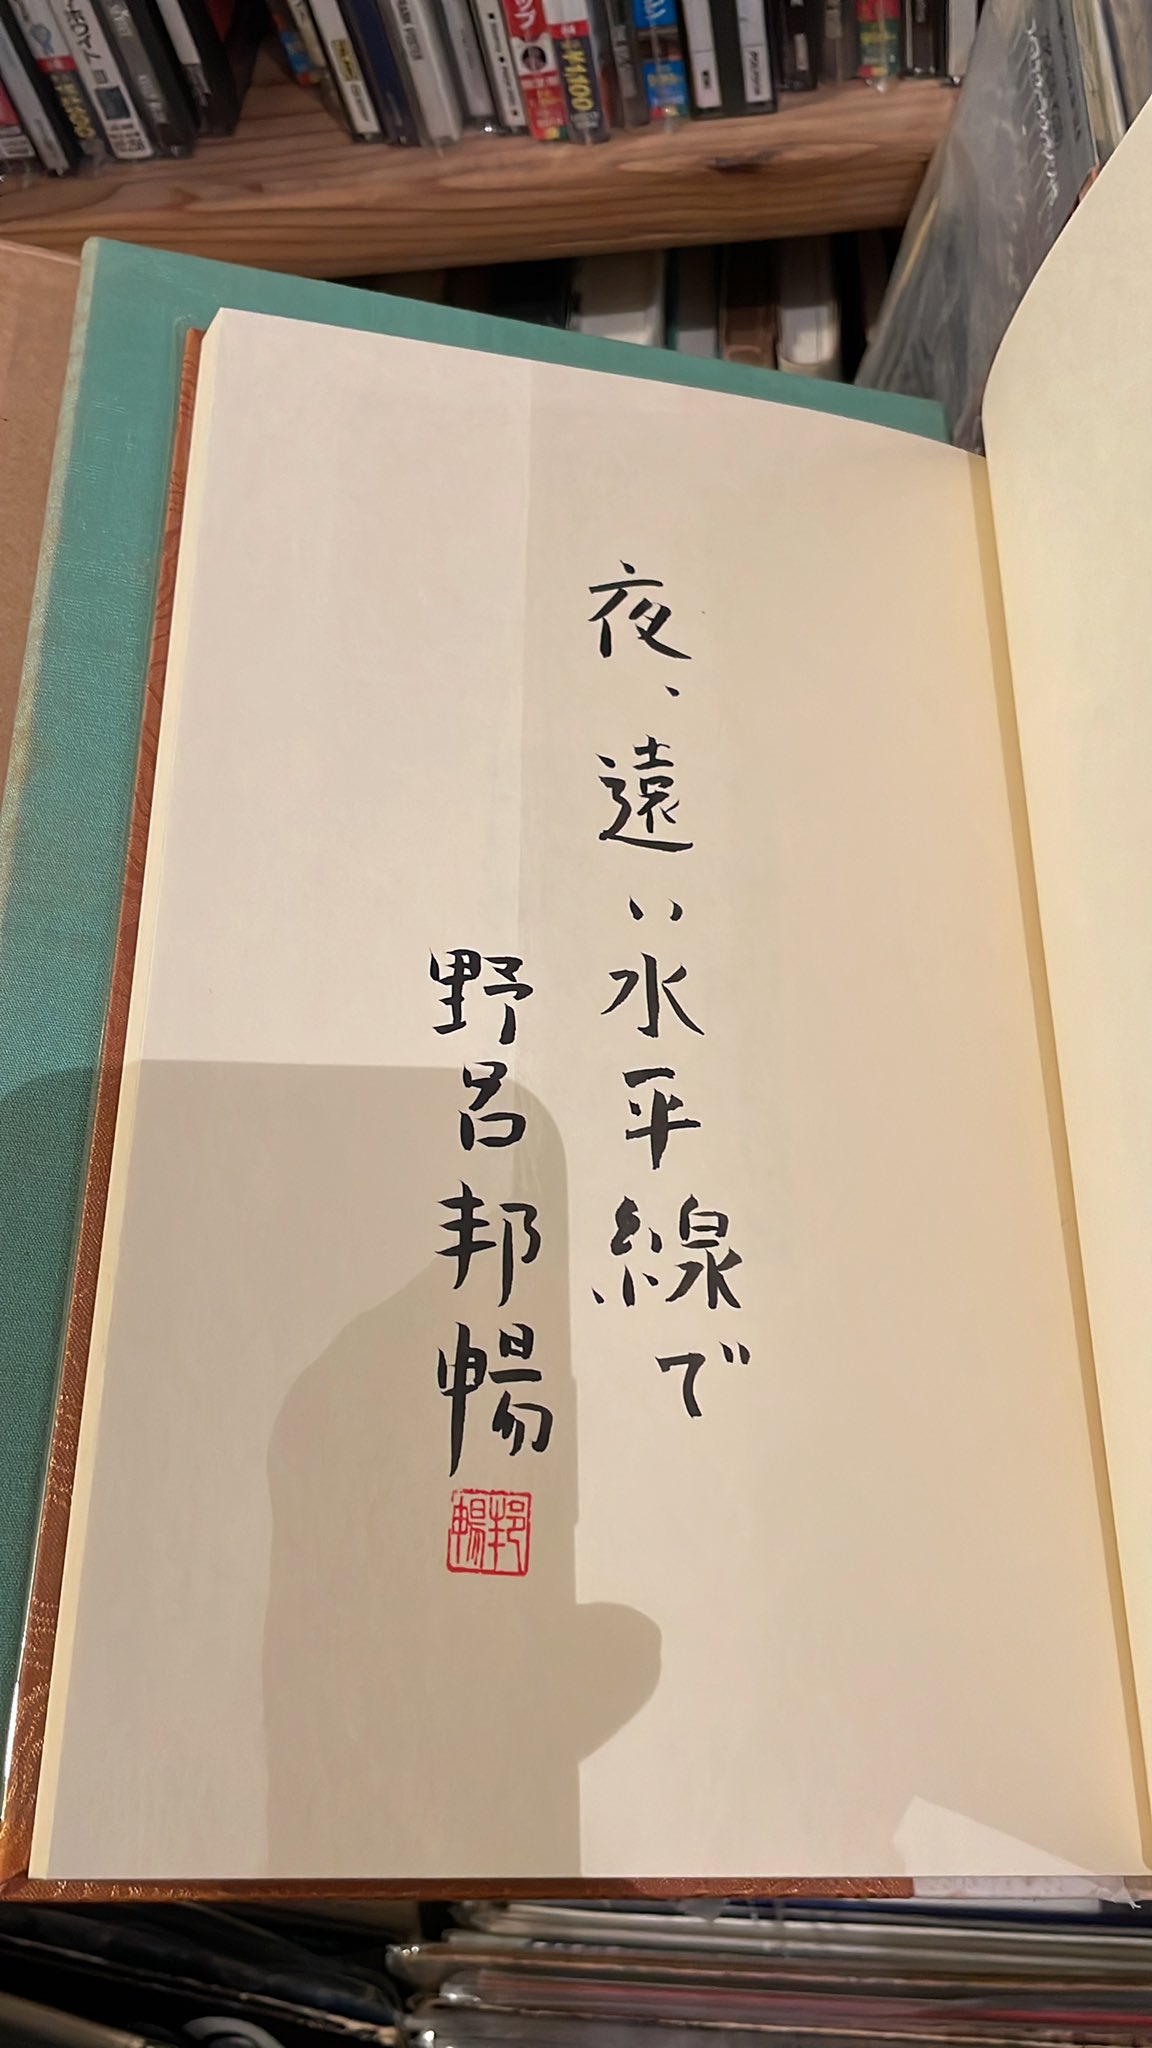 夜、遠い水平線で
野呂邦暢
邦暢